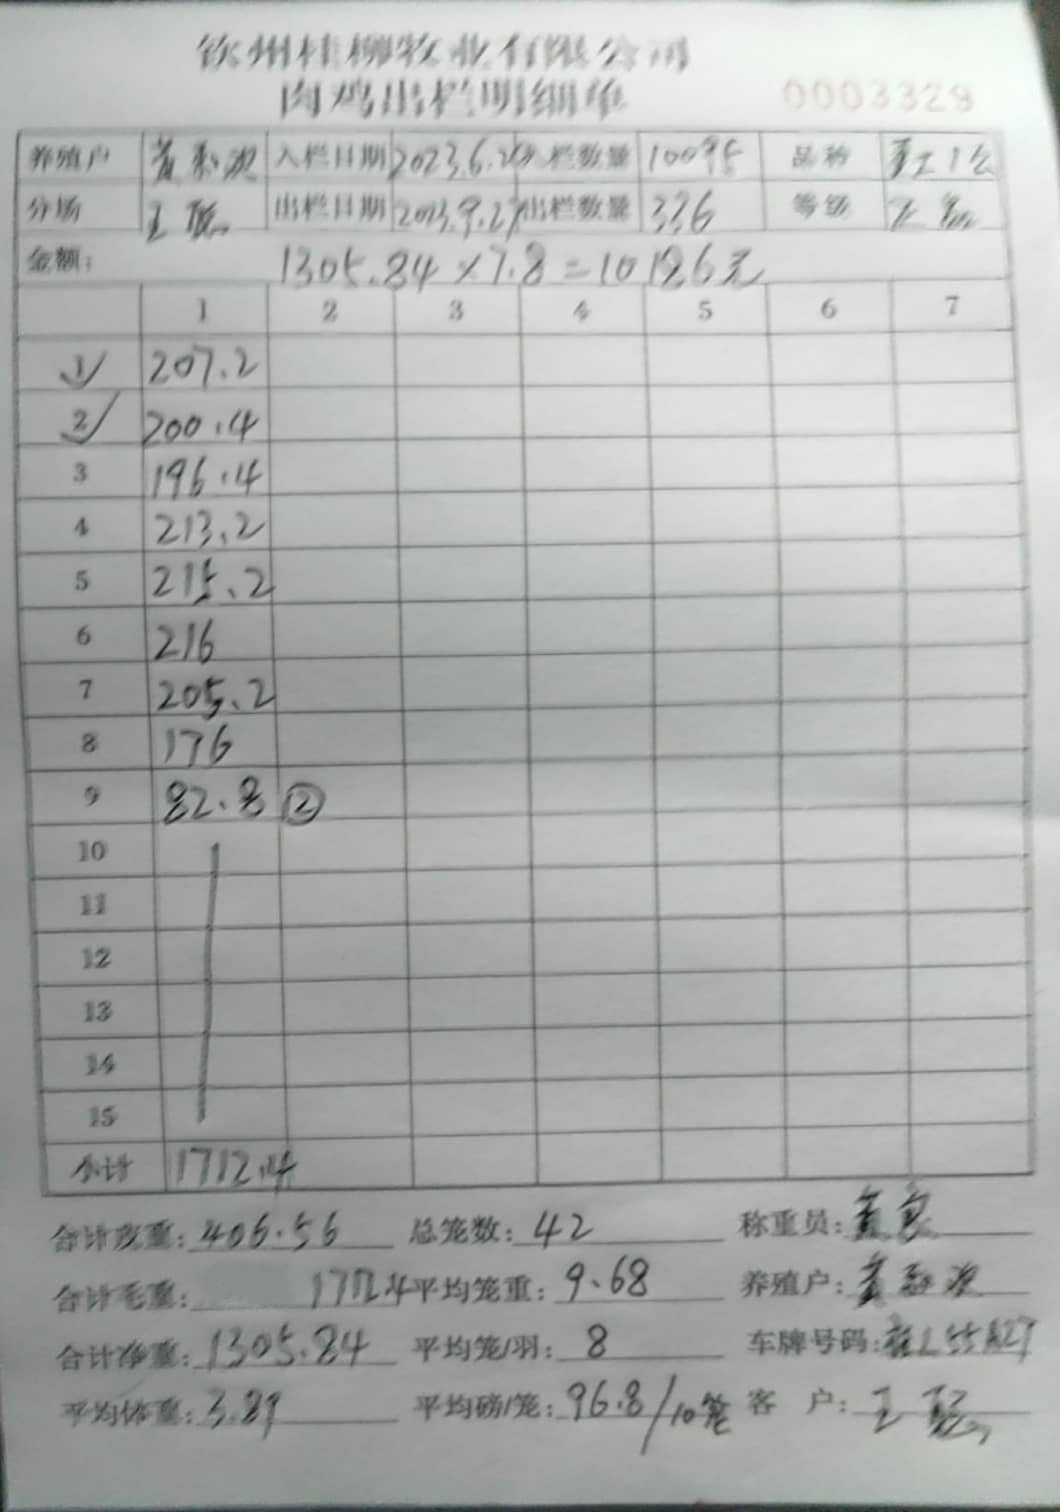 钦州桂柳牧业有限公司
肉鸡出栏明细单 0003329
养殖户 黄 入栏日期 2023.6. 入栏数量 10095 品种
分场 王 出栏日期 2023.9.27 出栏数量 336 等级 正
金额: 1305.84×7.8=10186元
1 2 3 4 5 6 7
1 207.2
2 200.4
3 196.4
4 213.2
5 215.2
6 216
7 205.2
8 176
9 82.8 ②
10
11
12
13
14
15
小计 1712.4
合计皮重: 406.56 总笼数: 42 称重员: 黄
合计毛重: 1712.4 平均笼重: 9.68 养殖户: 黄
合计净重: 1305.84 平均笼/羽: 8 车牌号码:
平均体重: 3.89 平均磅/笼: 96.8/10笼 客 户: 王